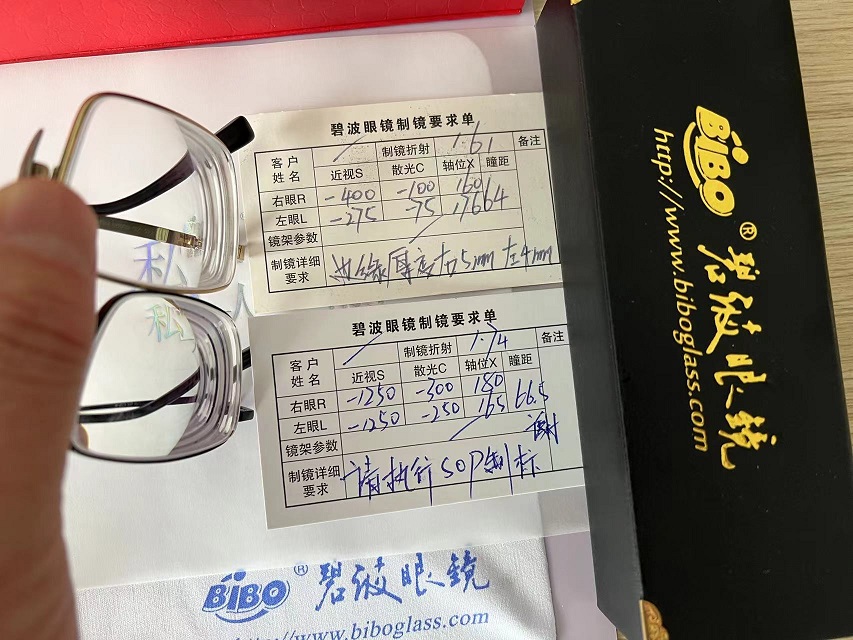 碧波眼镜制镜要求单
客户姓名 / 制镜折射 1.61 备注
近视S 散光C 轴位X 瞳距
右眼R -400 -100 160
左眼L -275 -75 176 64
镜架参数 /
制镜详细要求 边缘厚度右5mm 左4mm
碧波眼镜制镜要求单
客户姓名 / 制镜折射 1.74 备注
近视S 散光C 轴位X 瞳距
右眼R -1250 -300 180
左眼L -1250 -250 165 66.5
镜架参数 /
制镜详细要求 请执行SOP制标 谢
BiBO® 碧波眼镜
http://www.biboglass.com
BiBO® 碧波眼镜
http://www.biboglass.com
私人
私